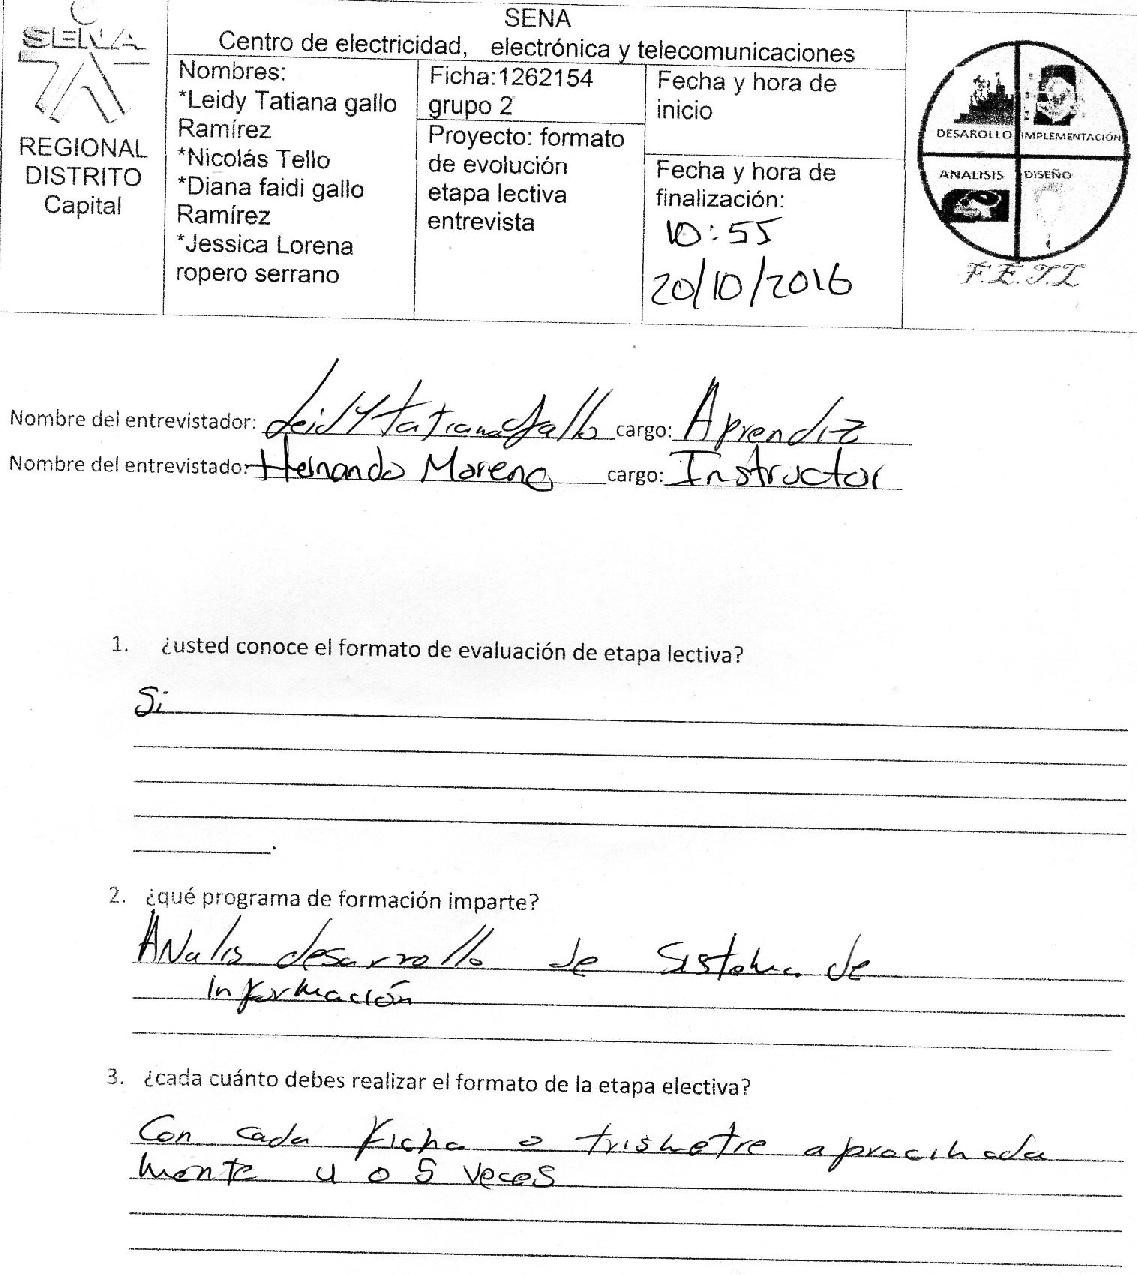 SENA
REGIONAL
DISTRITO
Capital
SENA
Centro de electricidad, electrónica y telecomunicaciones
Nombres:
*Leidy Tatiana gallo
Ramírez
*Nicolás Tello
*Diana faidi gallo
Ramírez
*Jessica Lorena
ropero serrano
Ficha:1262154
grupo 2
Proyecto: formato
de evolución
etapa lectiva
entrevista
Fecha y hora de
inicio
Fecha y hora de
finalización:
10:55
20/10/2016
DESAROLLO IMPLEMENTACIÓN
ANALISIS DISEÑO
F.E.T.L
Nombre del entrevistador: Leidy tatiana Gallo cargo: Aprendiz
Nombre del entrevistado: Hernando Moreno cargo: Instructor
1. ¿usted conoce el formato de evaluación de etapa lectiva?
Si
2. ¿qué programa de formación imparte?
ANalis desarrollo de sistema de
Información
3. ¿cada cuánto debes realizar el formato de la etapa electiva?
Con cada Ficha o trismetre aprocimada
mente 4 o 5 veces